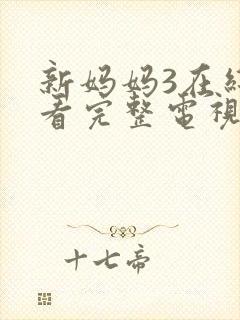 新妈妈3在
看完整電視
十七帝